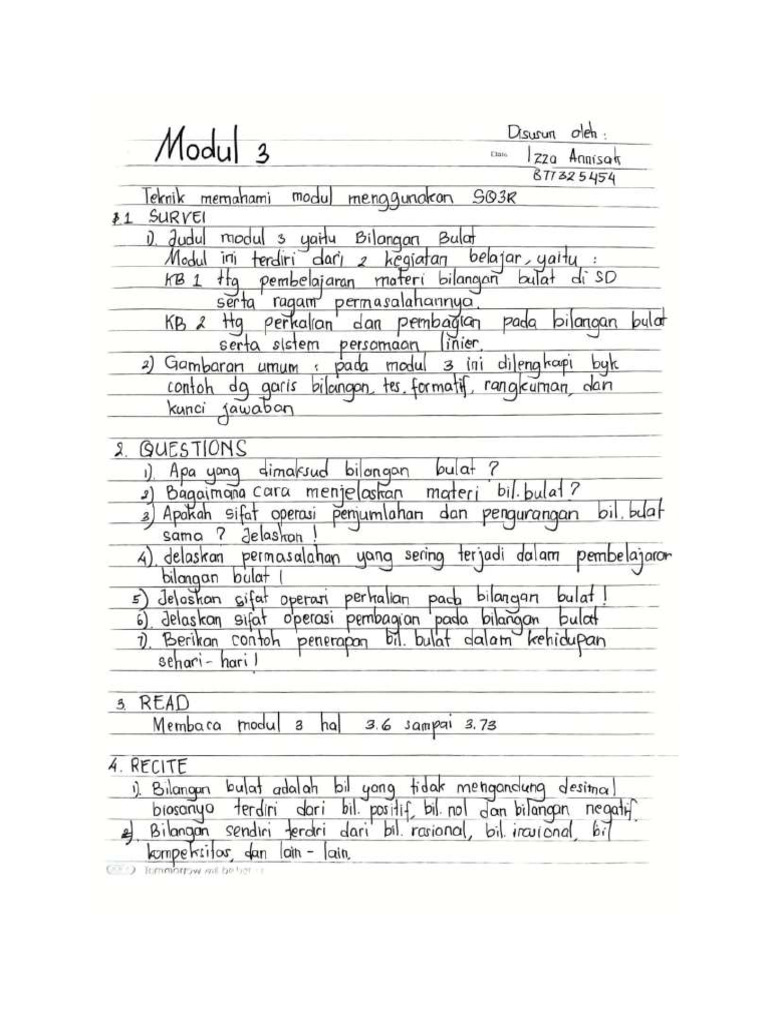 Modul 3
Disusun oleh :
Izza Annisah
877325454
Teknik memahami modul menggunakan SQ3R
1 SURVEI
1). Judul modul 3 yaitu Bilangan Bulat
Modul ini terdiri dari 2 kegiatan belajar, yaitu :
KB 1 ttg pembelajaran materi bilangan bulat di SD
serta ragam permasalahannya.
KB 2 ttg perkalian dan pembagian pada bilangan bulat
serta sistem persamaan linier.
2) Gambaran umum : pada modul 3 ini dilengkapi byk
contoh dg garis bilangan, tes. formatif, rangkuman, dan
kunci jawaban
2. QUESTIONS
1). Apa yang dimaksud bilangan bulat ?
2) Bagaimana cara menjelaskan materi bil. bulat ?
3) Apakah sifat operasi penjumlahan dan pengurangan bil. bulat
sama ? Jelaskan !
4). Jelaskan permasalahan yang sering terjadi dalam pembelajaran
bilangan bulat !
5) Jelaskan sifat operasi perkalian pada bilangan bulat !
6). Jelaskan sifat operasi pembagian pada bilangan bulat
7). Berikan contoh penerapan bil. bulat dalam kehidupan
sehari - hari !
3. READ
Membaca modul 3 hal 3.6 sampai 3.73
4. RECITE
1). Bilangan bulat adalah bil yang tidak mengandung desimal
biasanya terdiri dari bil. positif, bil. nol dan bilangan negatif.
2). Bilangan sendiri terdiri dari bil. rasional, bil. irasional, bil
kompeksitas, dan lain - lain.